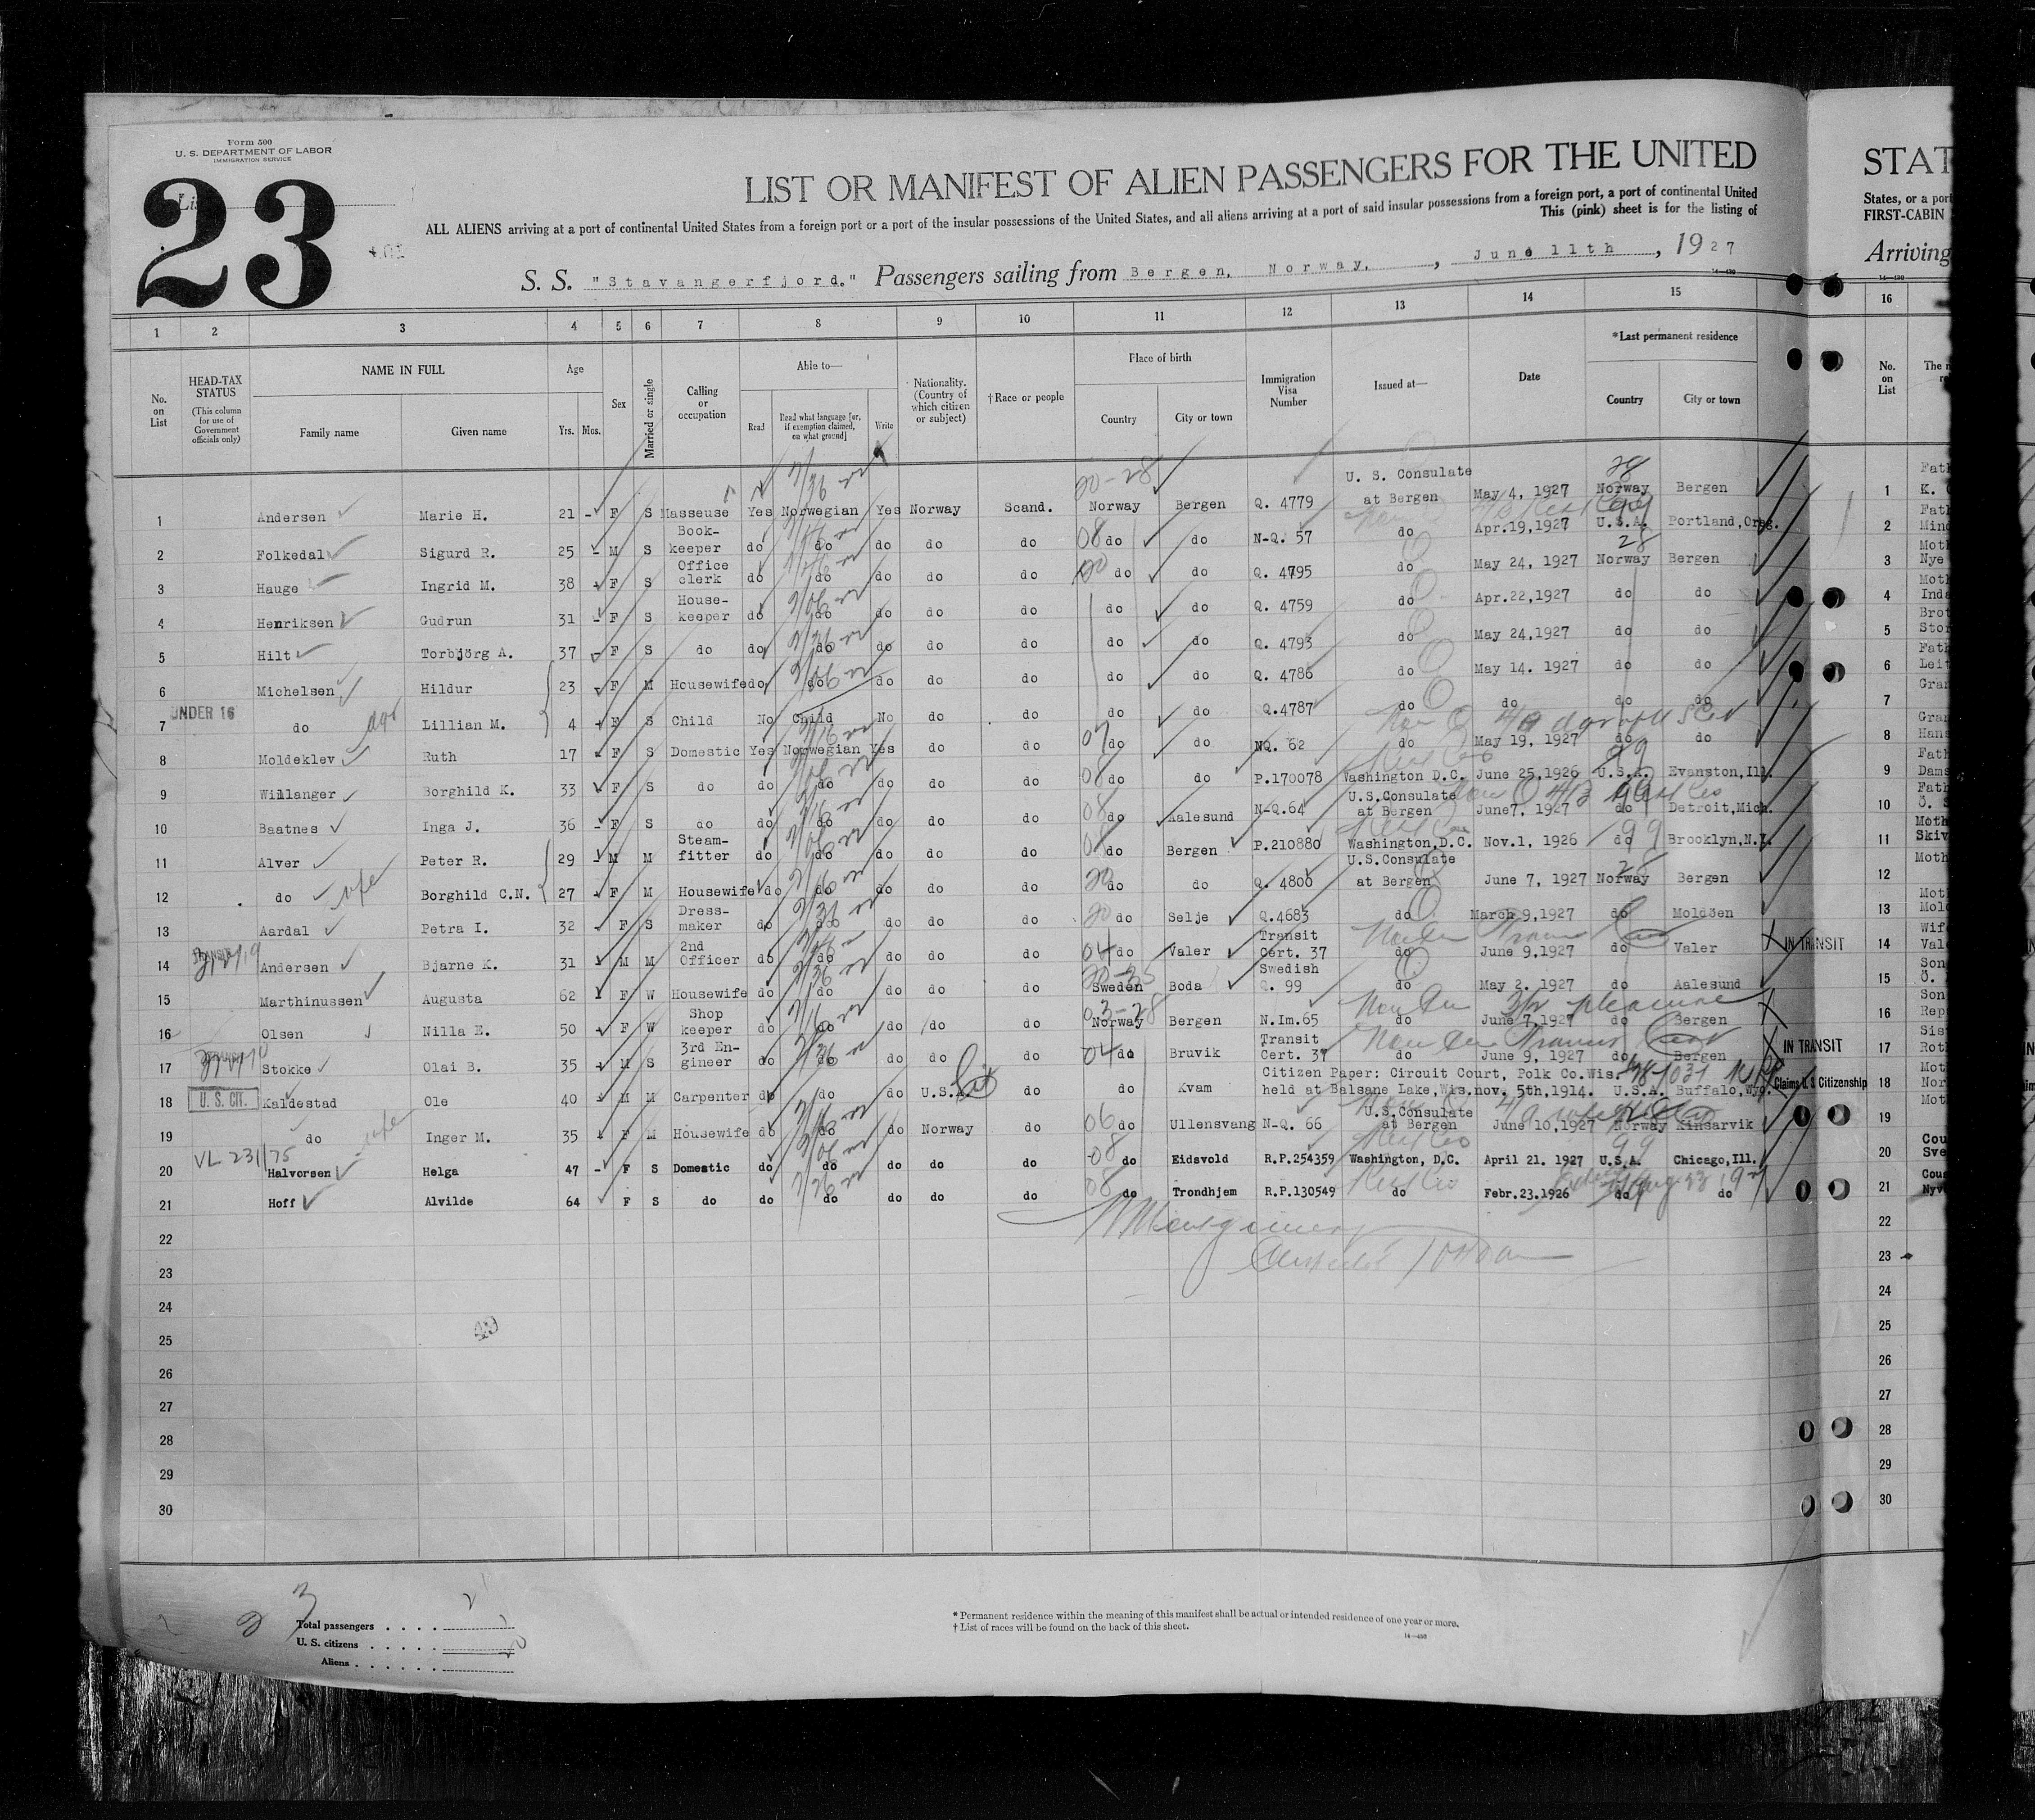 Form 500
U. S. DEPARTMENT OF LABOR
IMMIGRATION SERVICE
List
23
LIST OR MANIFEST OF ALIEN PASSENGERS FOR THE UNITED
ALL ALIENS arriving at a port of continental United States from a foreign port or a port of the insular possessions of the United States, and all aliens arriving at a port of said insular possessions from a foreign port, a port of continental United
This (pink) sheet is for the listing of
S. S. "Stavangerfjord." Passengers sailing from Bergen, Norway, , June 11th , 1927
STAT
States, or a port
FIRST-CABIN
Arriving
1 2 3 4 5 6 7 8 9 10 11 12 13 14 15 16
No. on List
HEAD-TAX STATUS (This column for use of Government officials only)
NAME IN FULL Family name Given name
Age Yrs. Mos.
Sex
Married or single
Calling or occupation
Able to— Read Read what language [or, if exemption claimed, on what ground] Write
Nationality. (Country of which citizen or subject)
† Race or people
Place of birth Country City or town
Immigration Visa Number
Issued at—
Date
*Last permanent residence Country City or town
No. on List
1 Andersen Marie H. 21 - F S Masseuse Yes Norwegian Yes Norway Scand. Norway Bergen Q. 4779 U. S. Consulate at Bergen May 4, 1927 Norway Bergen 1 K.
2 Folkedal Sigurd R. 25 - M S Book-keeper do do do do do do do N-Q. 57 do Apr.19,1927 U.S.A. Portland,Oreg. 2
3 Hauge Ingrid M. 38 F S Office clerk do do do do do do do Q. 4795 do May 24, 1927 Norway Bergen 3 Nye
4 Henriksen Gudrun 31 - F S House-keeper do do do do do do do Q. 4759 do Apr.22,1927 do do 4
5 Hilt Torbjörg A. 37 - F S do do do do do do do do Q. 4793 do May 24,1927 do do 5
6 Michelsen Hildur 23 - F M Housewife do do do do do do do Q. 4786 do May 14. 1927 do do 6
UNDER 16
7 do Lillian M. 4 F S Child No Child No do do do do Q.4787 do do do do 7
8 Moldeklev Ruth 17 F S Domestic Yes Norwegian Yes do do do do NQ. 62 do May 19, 1927 do do 8 Hans
9 Willanger Borghild K. 33 F S do do do do do do do do P.170078 Washington D.C. June 25,1926 U.S.A. Evanston,Ill. 9 Dams
10 Baatnes Inga J. 36 - F S do do do do do do do Aalesund N-Q.64 U.S.Consulate at Bergen June7, 1927 do Detroit,Mich. 10
11 Alver Peter R. 29 - M M Steam-fitter do do do do do do Bergen P.210880 Washington,D.C. Nov.1, 1926 do Brooklyn,N.Y. 11 Skiv
12 do wife Borghild C.N. 27 F M Housewife do do do do do do do Q. 4800 U.S.Consulate at Bergen June 7, 1927 Norway Bergen 12
13 Aardal Petra I. 32 F S Dress-maker do do do do do do Selje Q.4683 do March 9,1927 do Moldöen 13
14 Andersen Bjarne K. 31 M M 2nd Officer do do do do do do Valer Transit Cert. 37 do June 9,1927 do Valer IN TRANSIT 14
15 Marthinussen Augusta 62 F W Housewife do do do do do Sweden Boda Swedish Q. 99 do May 2. 1927 do Aalesund 15
16 Olsen Nilla E. 50 F W Shop keeper do do do do do Norway Bergen N.Im.65 do June 7,1927 do Bergen 16
17 Stokke Olai B. 35 M S 3rd Engineer do do do do do do Bruvik Transit Cert. 37 do June 9, 1927 do Bergen IN TRANSIT 17
U. S. CIT.
18 Kaldestad Ole 40 M M Carpenter do do do U.S.A. do do Kvam Citizen Paper: Circuit Court, Polk Co.Wis. held at Balsane Lake,Wis.nov. 5th,1914. U.S.A. Buffalo,Wyo. Claims U. S. Citizenship 18
19 do wife Inger M. 35 F M Housewife do do do Norway do do Ullensvang N-Q. 66 U.S.Consulate at Bergen June 10,1927 Norway Kinsarvik 19
VL 231/75
20 Halvorsen Helga 47 - F S Domestic do do do do do do Eidsvold R.P.254359 Washington, D.C. April 21. 1927 U.S.A. Chicago,Ill. 20
21 Hoff Alvilde 64 F S do do do do do do do Trondhjem R.P.130549 do Febr.23.1926 do do 21
22 22
23 23
24 24
25 25
26 26
27 27
28 28
29 29
30 30
Total passengers
U. S. citizens
Aliens
* Permanent residence within the meaning of this manifest shall be actual or intended residence of one year or more.
† List of races will be found on the back of this sheet.
14—430